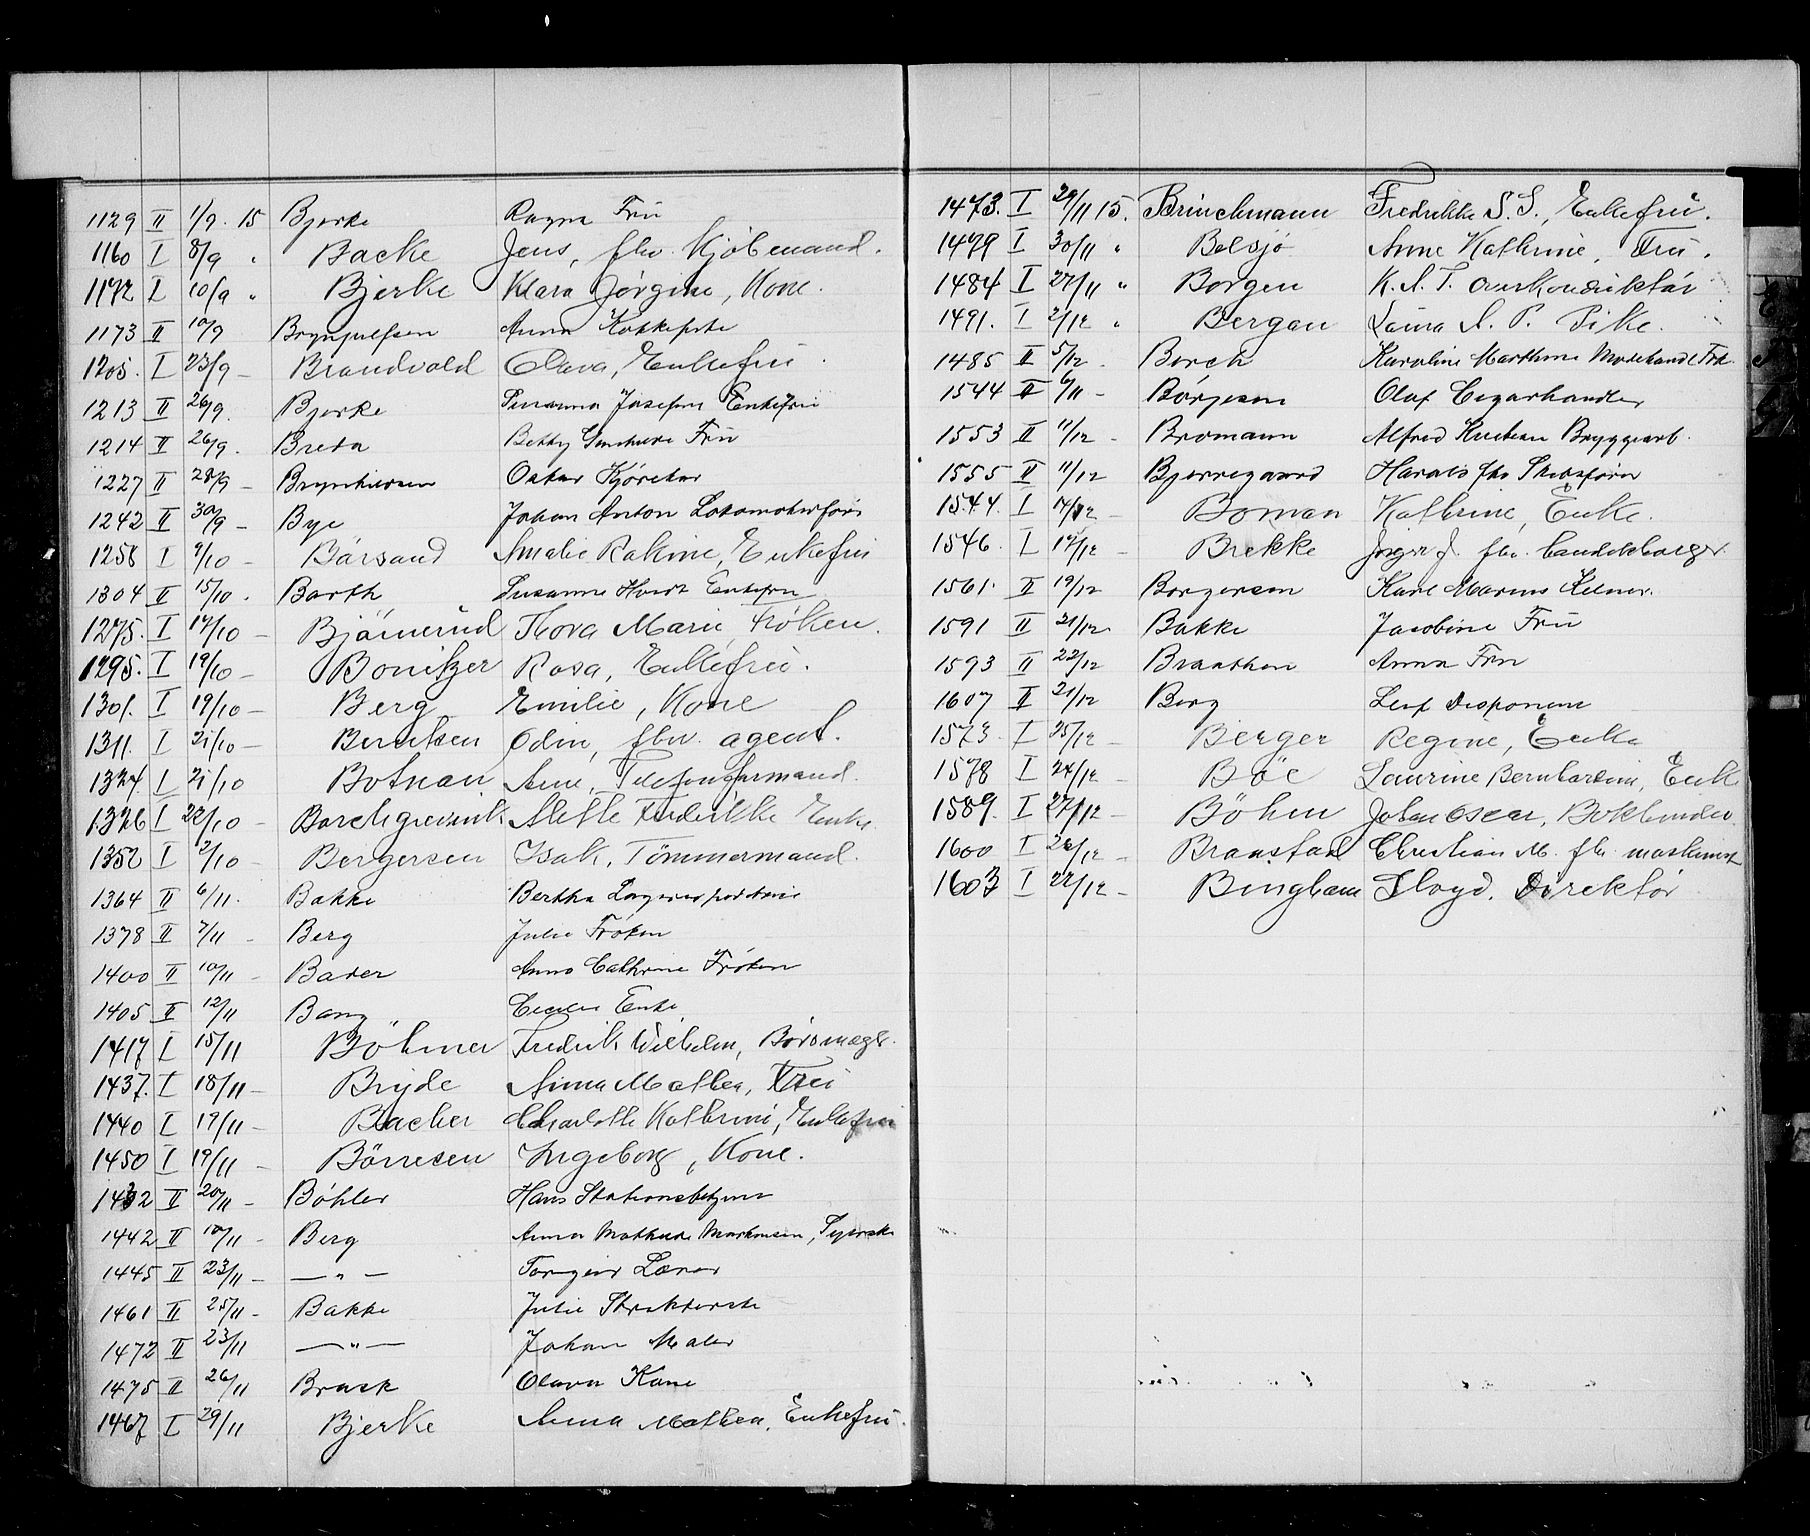 1129 II 1/9. 15 Bjerke Ragna Fru
1160 I 8/9 " Backe Jens, fhv. Kjöbmand.
1172 I 10/9 " Bjerke Klara Jørgine, Kone.
1173 II 10/9 Brynjulfsen Anna Kokkepike
1205. I 23/9 — Brandvold Olava, Enkefru.
1213 II 26/9. Bjerke Susanna Josefine Enkefru
1214 II 26/9. Breda Betty Fru
1227 II 28/9 — Brynhildsen Oskar Kjöretør
1242 II 30/9 — Bye Johan Anton Lokomotivförer
1258 I 9/10 — Bårsand Amalie Rakine, Enkefru
1304 II 15/10. Barth Susanne Hvidt Enkefru
1275. I 14/10 — Bjørnerud Thora Marie, Frøken.
1295. I 19/10 — Bonitzer Rosa, Enkefru.
1301. I 19/10 — Berg Emilie, Kone
1311. I 21/10 — Berntsen Odin, fhv. agent.
1324. I 21/10 Botnan Arne, Telefonformand.
1326 I 22/10 — Borchgrevink Mette Fredrikke Enke.
1352 I 2/10 — Bergersen Isak, Tömmermand.
1364 II 6/11. Bakke Bertha
1378 II 7/11 — Berg Julie Frøken
1400 II 10/11 — Bader Anna Cathrine Frøken
1405 II 12/11 Bang Cecilie Enke
1417 I 15/11 Böhmer Fredrik Wilhelm, Börsmægl.
1437. I 18/11 — Bryde Anna Mathea, Fru
1440 I 19/11 — Bacher Charlotte Kathrine, Enkefru
1450 I 19/11 — Børresen Ingeborg, Kone.
1432 II 20/11 — Böhler Hans Stationsbetjent
1442 II 10/11 — Berg Anna Mathilde Markussen, Syerske
1445 II 23/11 — — " — Torgeir Lærer
1461 II 25/11 — Bakke Julie Strykerske
1472 II 23/11 — " — Johan Maler
1475 II 26/11 Brask Olava Kone
1467 I 29/11 Bjerke Anna Mathea, Enkefru.
1473. I 29/11 15. Brinchmann Fredrikke S. S., Enkefru.
1479 I 30/11 " Belsjø Anne Kathrine, Fru.
1484 I 27/11 " Borgen K. A. T. Overkonduktør
1491. I 2/12 " Bergan Laura A. P. Pike.
1485 II 5/12. Borch Karoline Marthine Modehandl. Frk.
1544 II 6/11 — Børgesen Olaf Cigarhandler
1553 II 11/12 — Bromann Alfred Kristian Bryggearb.
1555 II 11/12 Bjerregaard Harald fhv Skibsfører
1544. I 14/12 — Boman Kathrine, Enke.
1546. I 14/12 — Brekke Jørgen J. fhv. Landekbarger.
1561. II 19/12 Borgersen Karl Marius Kelner.
1591 II 21/12. Bakke Jacobine Fru
1593 II 22/12 Braathen Anna Fru
1607 II 21/12 Berg Leif Disponent
1573. I 25/12 — Berger Regine, Enke
1578 I 24/12 — Böe Laurine Bernhardine, Enke
1589. I 27/12 — Böhm Johan Oscar, Bokbinder.
1600 I 26/12 — Braastad Christian M. fhv. maskinist
1603 I 22/12 — Bingham Lloyd, Direktør